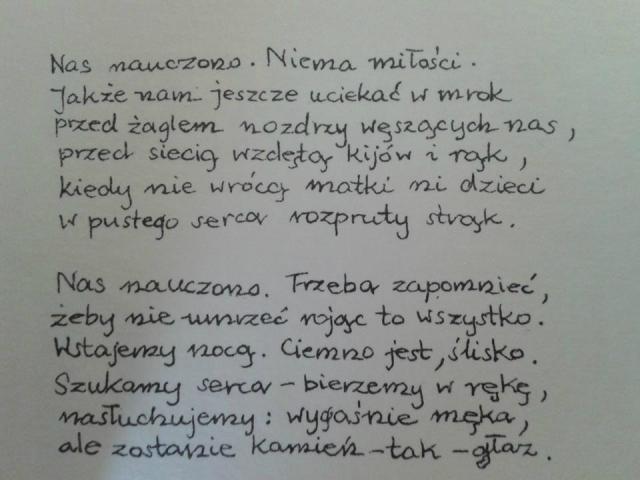 Nas nauczono. Niema miłości.
Jakże nam jeszcze uciekać w mrok
przed żaglem nozdrzy węszących nas,
przed siecią wzdętą kijów i rąk,
kiedy nie wrócą matki ni dzieci
w pustego serca rozpruty strąk.

Nas nauczono. Trzeba zapomnieć,
żeby nie umrzeć rojąc to wszystko.
Wstajemy nocą. Ciemno jest, ślisko.
Szukamy serca – bierzemy w rękę,
nasłuchujemy: wygaśnie męka,
ale zostanie kamień – tak – głaz.